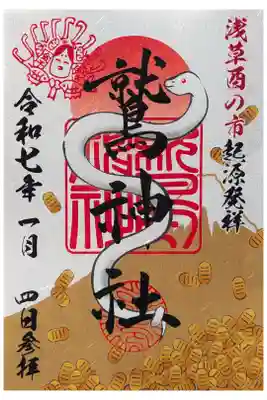 浅草酉の市
起源発祥
鷲神社
令和七年 一月 四日参拝